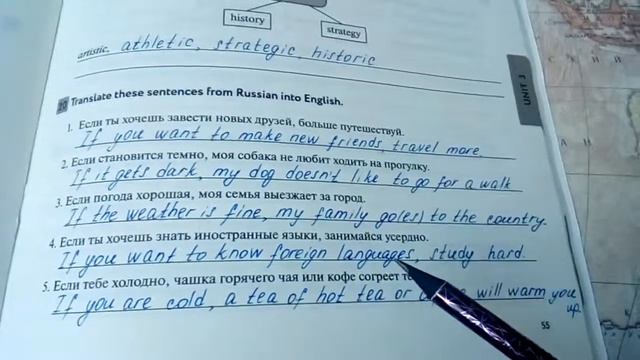 history
strategy
artistic, athletic, strategic, historic
UNIT 3
Translate these sentences from Russian into English.
1. Если ты хочешь завести новых друзей, больше путешествуй.
If you want to make new friends, travel more.
2. Если становится темно, моя собака не любит ходить на прогулку.
If it gets dark, my dog doesn't like to go for a walk
3. Если погода хорошая, моя семья выезжает за город.
If the weather is fine, my family go(es) to the country.
4. Если ты хочешь знать иностранные языки, занимайся усердно.
If you want to know foreign languages, study hard.
5. Если тебе холодно, чашка горячего чая или кофе согреет
If you are cold, a tea of hot tea or will warm you
up.
55